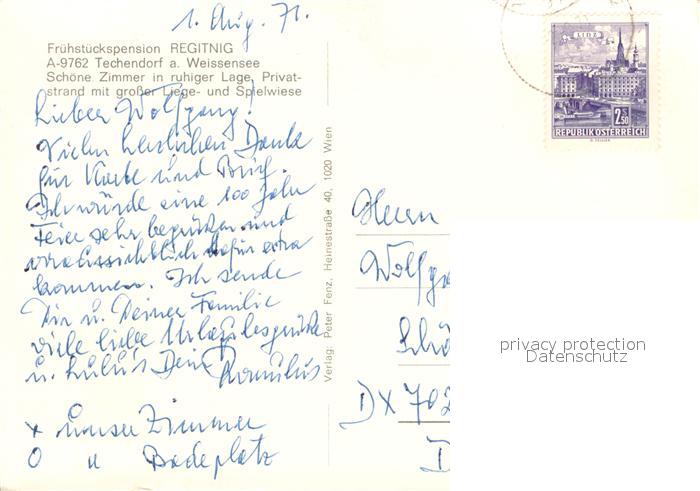 1. Aug. 71.
Frühstückspension REGITNIG
A-9762 Techendorf a. Weissensee
Schöne Zimmer in ruhiger Lage, Privat-
strand mit großer Liege- und Spielwiese
Lieber Wolfgang!
Vielen herzlichen Dank
für Karte und Brief.
Ich würde eine 100 Jahr
Feier sehr begrüßen und
voraussichtlich dafür extra
kommen. Ich sende
Dir u. Deiner Familie
viele liebe Urlaubsgrüße
u. Dein Romulus
x unser Zimmer
O " Badeplatz
Verlag: Peter Fenz, Heinestraße 40, 1020 Wien
LINZ
2.50
REPUBLIK ÖSTERREICH
Herrn
Wolfga
Schö
DX 702
D
privacy protection
Datenschutz